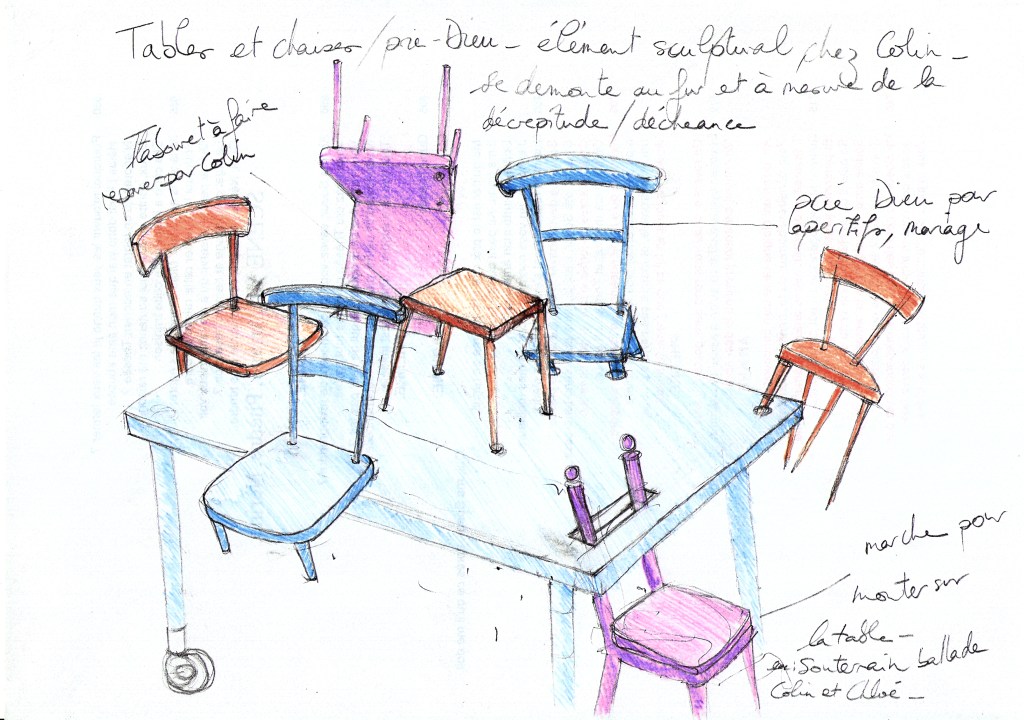 Tables et chaises / prie-Dieu - élément sculptural chez Colin -
se demonte au fur et à mesure de la
décrepitude / décheance
Tabouret à faire
reparer par Colin
prie Dieu pour
aperitifs, mariage
marche pour
monter sur
la table -
souterrain ballade
Colin et Chloé -